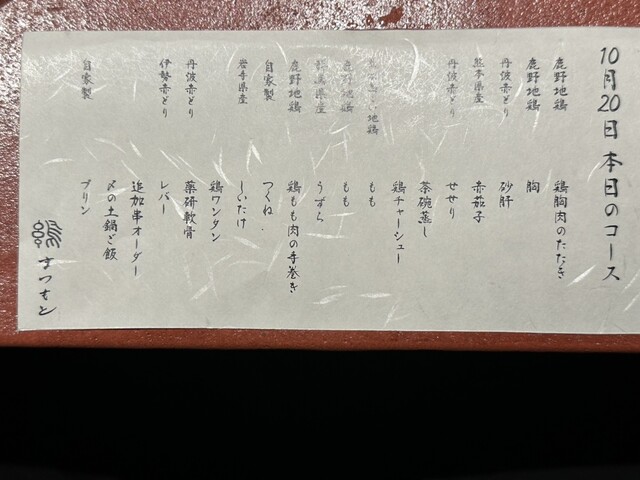 10月20日 本日のコース
鹿野地鶏 鶏胸肉のたたき
鹿野地鶏 胸
丹波赤どり 砂肝
熊本県産 赤茄子
丹波赤どり せせり
茶碗蒸し
鶏チャーシュー
地鶏 もも
鹿野地鶏 もも
群馬県産 うずら
鹿野地鶏 鶏もも肉の手巻き
自家製 つくね
岩手県産 しいたけ
鶏ワンタン
伊勢赤どり 薬研軟骨
伊勢赤どり レバー
追加串オーダー
〆の土鍋ご飯
自家製 プリン
まつもと